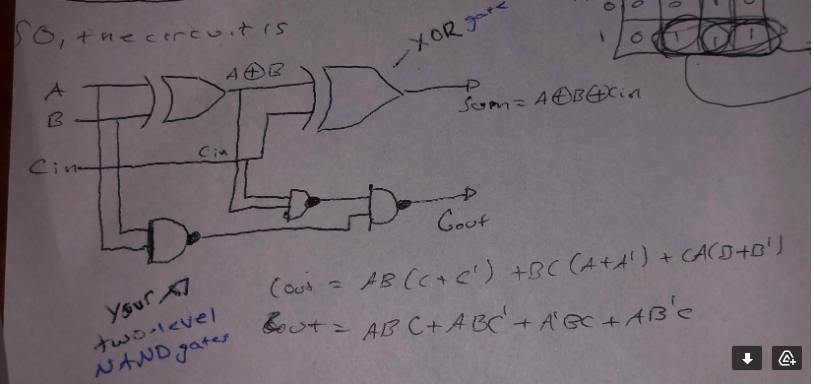 SO, the circuit is
XOR gate
0 0 0 1 0
1 0 1 1 1
A
A⊕B
B
Sum = A⊕B⊕Cin
Cin
Cin
Cout
Cout = AB(C+C') + BC(A+A') + CA(B+B')
Cout = ABC + ABC' + A'BC + AB'C
your
two-level
NAND gates